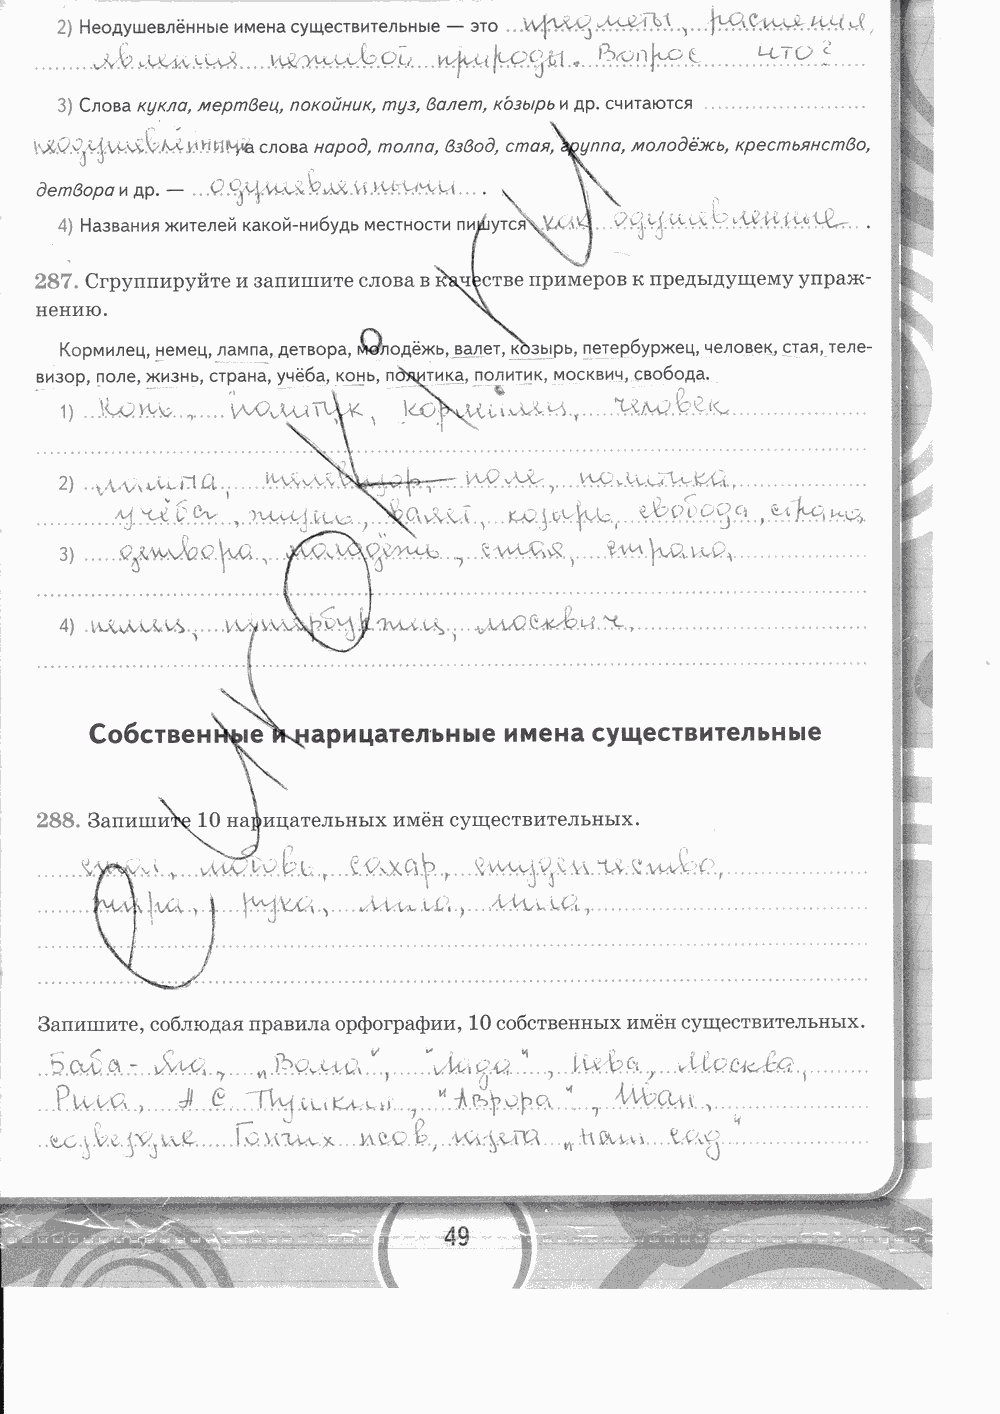 2) Неодушевлённые имена существительные — это предметы, растения,
явления неживой природы. Вопрос что?
3) Слова кукла, мертвец, покойник, туз, валет, ко́зырь и др. считаются
неодушевлёнными, а слова народ, толпа, взвод, стая, группа, молодёжь, крестьянство,
детвора и др. — одушевленными.
4) Названия жителей какой-нибудь местности пишутся как одушевленные.
287. Сгруппируйте и запишите слова в качестве примеров к предыдущему упраж-
нению.
Кормилец, немец, лампа, детвора, молодёжь, валет, козырь, петербуржец, человек, стая, теле-
визор, поле, жизнь, страна, учёба, конь, политика, политик, москвич, свобода.
1) Конь, политик, кормилец, человек
2) лампа, телевизор, поле, политика,
учёба, жизнь, валет, козырь, свобода, страна
3) детвора, молодёжь, стая, страна,
4) немец, петербуржец, москвич,
Собственные и нарицательные имена существительные
288. Запишите 10 нарицательных имён существительных.
стол, любовь, сахар, студенчество,
рука,
Запишите, соблюдая правила орфографии, 10 собственных имён существительных.
Баба-Яга, „Волга", "Лада", Нева, Москва,
Рига, А С Пушкин, "Аврора", Иван,
созвездие Гончих псов, газета „Наш сад"
49
eurokі.ru